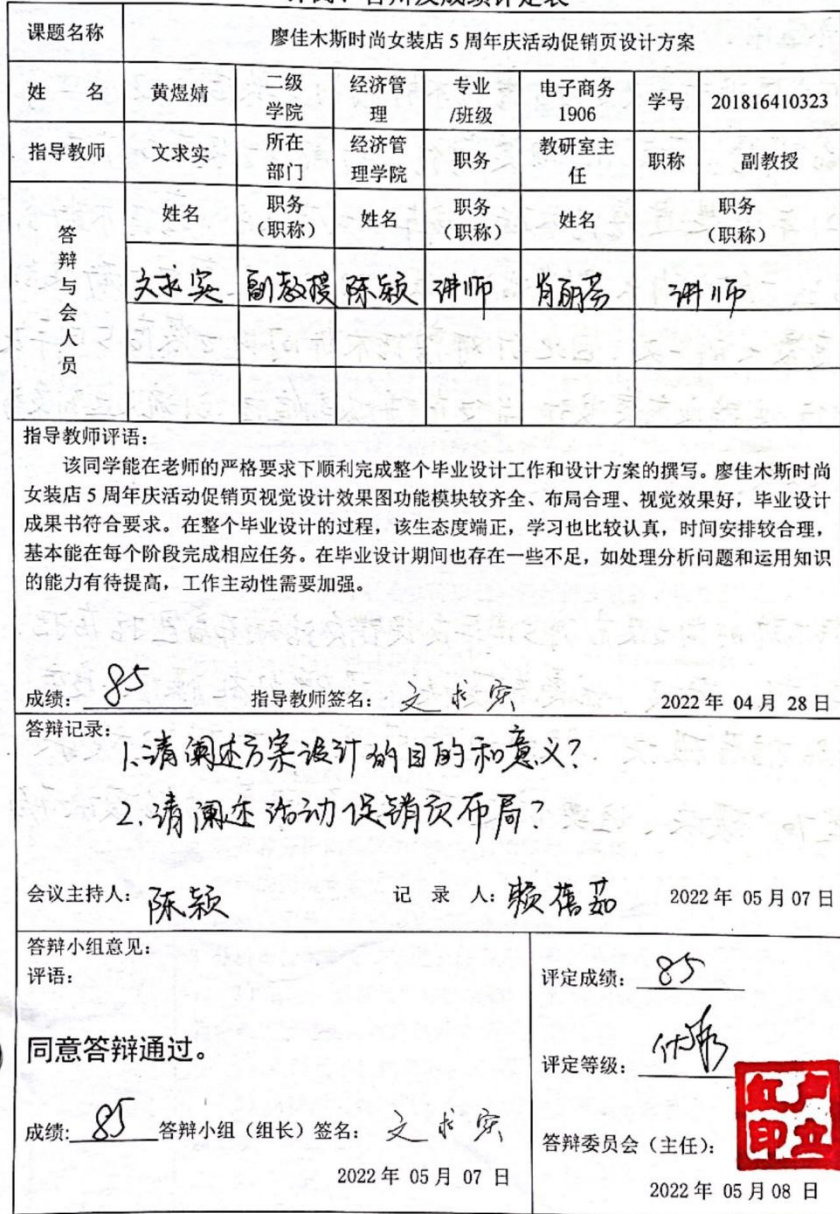 课题名称 廖佳木斯时尚女装店 5 周年庆活动促销页设计方案
姓 名 黄煜婧 二级学院 经济管理 专业/班级 电子商务1906 学号 201816410323
指导教师 文求实 所在部门 经济管理学院 职务 教研室主任 职称 副教授
答辩与会人员 姓名 职务(职称) 姓名 职务(职称) 姓名 职务(职称)
文求实 副教授 陈颖 讲师 肖丽芬 讲师
指导教师评语:
该同学能在老师的严格要求下顺利完成整个毕业设计工作和设计方案的撰写。廖佳木斯时尚
女装店 5 周年庆活动促销页视觉设计效果图功能模块较齐全、布局合理、视觉效果好,毕业设计
成果书符合要求。在整个毕业设计的过程,该生态度端正,学习也比较认真,时间安排较合理,
基本能在每个阶段完成相应任务。在毕业设计期间也存在一些不足,如处理分析问题和运用知识
的能力有待提高,工作主动性需要加强。
成绩: 85 指导教师签名: 文求实 2022 年 04 月 28 日
答辩记录:
1.请阐述方案设计的目的和意义?
2.请阐述活动促销页布局?
会议主持人: 陈颖 记 录 人: 赖蓓茹 2022 年 05 月 07 日
答辩小组意见:
评语:
同意答辩通过。
成绩: 85 答辩小组(组长)签名: 文求实
2022 年 05 月 07 日
评定成绩: 85
评定等级: 优秀
答辩委员会(主任):
2022 年 05 月 08 日